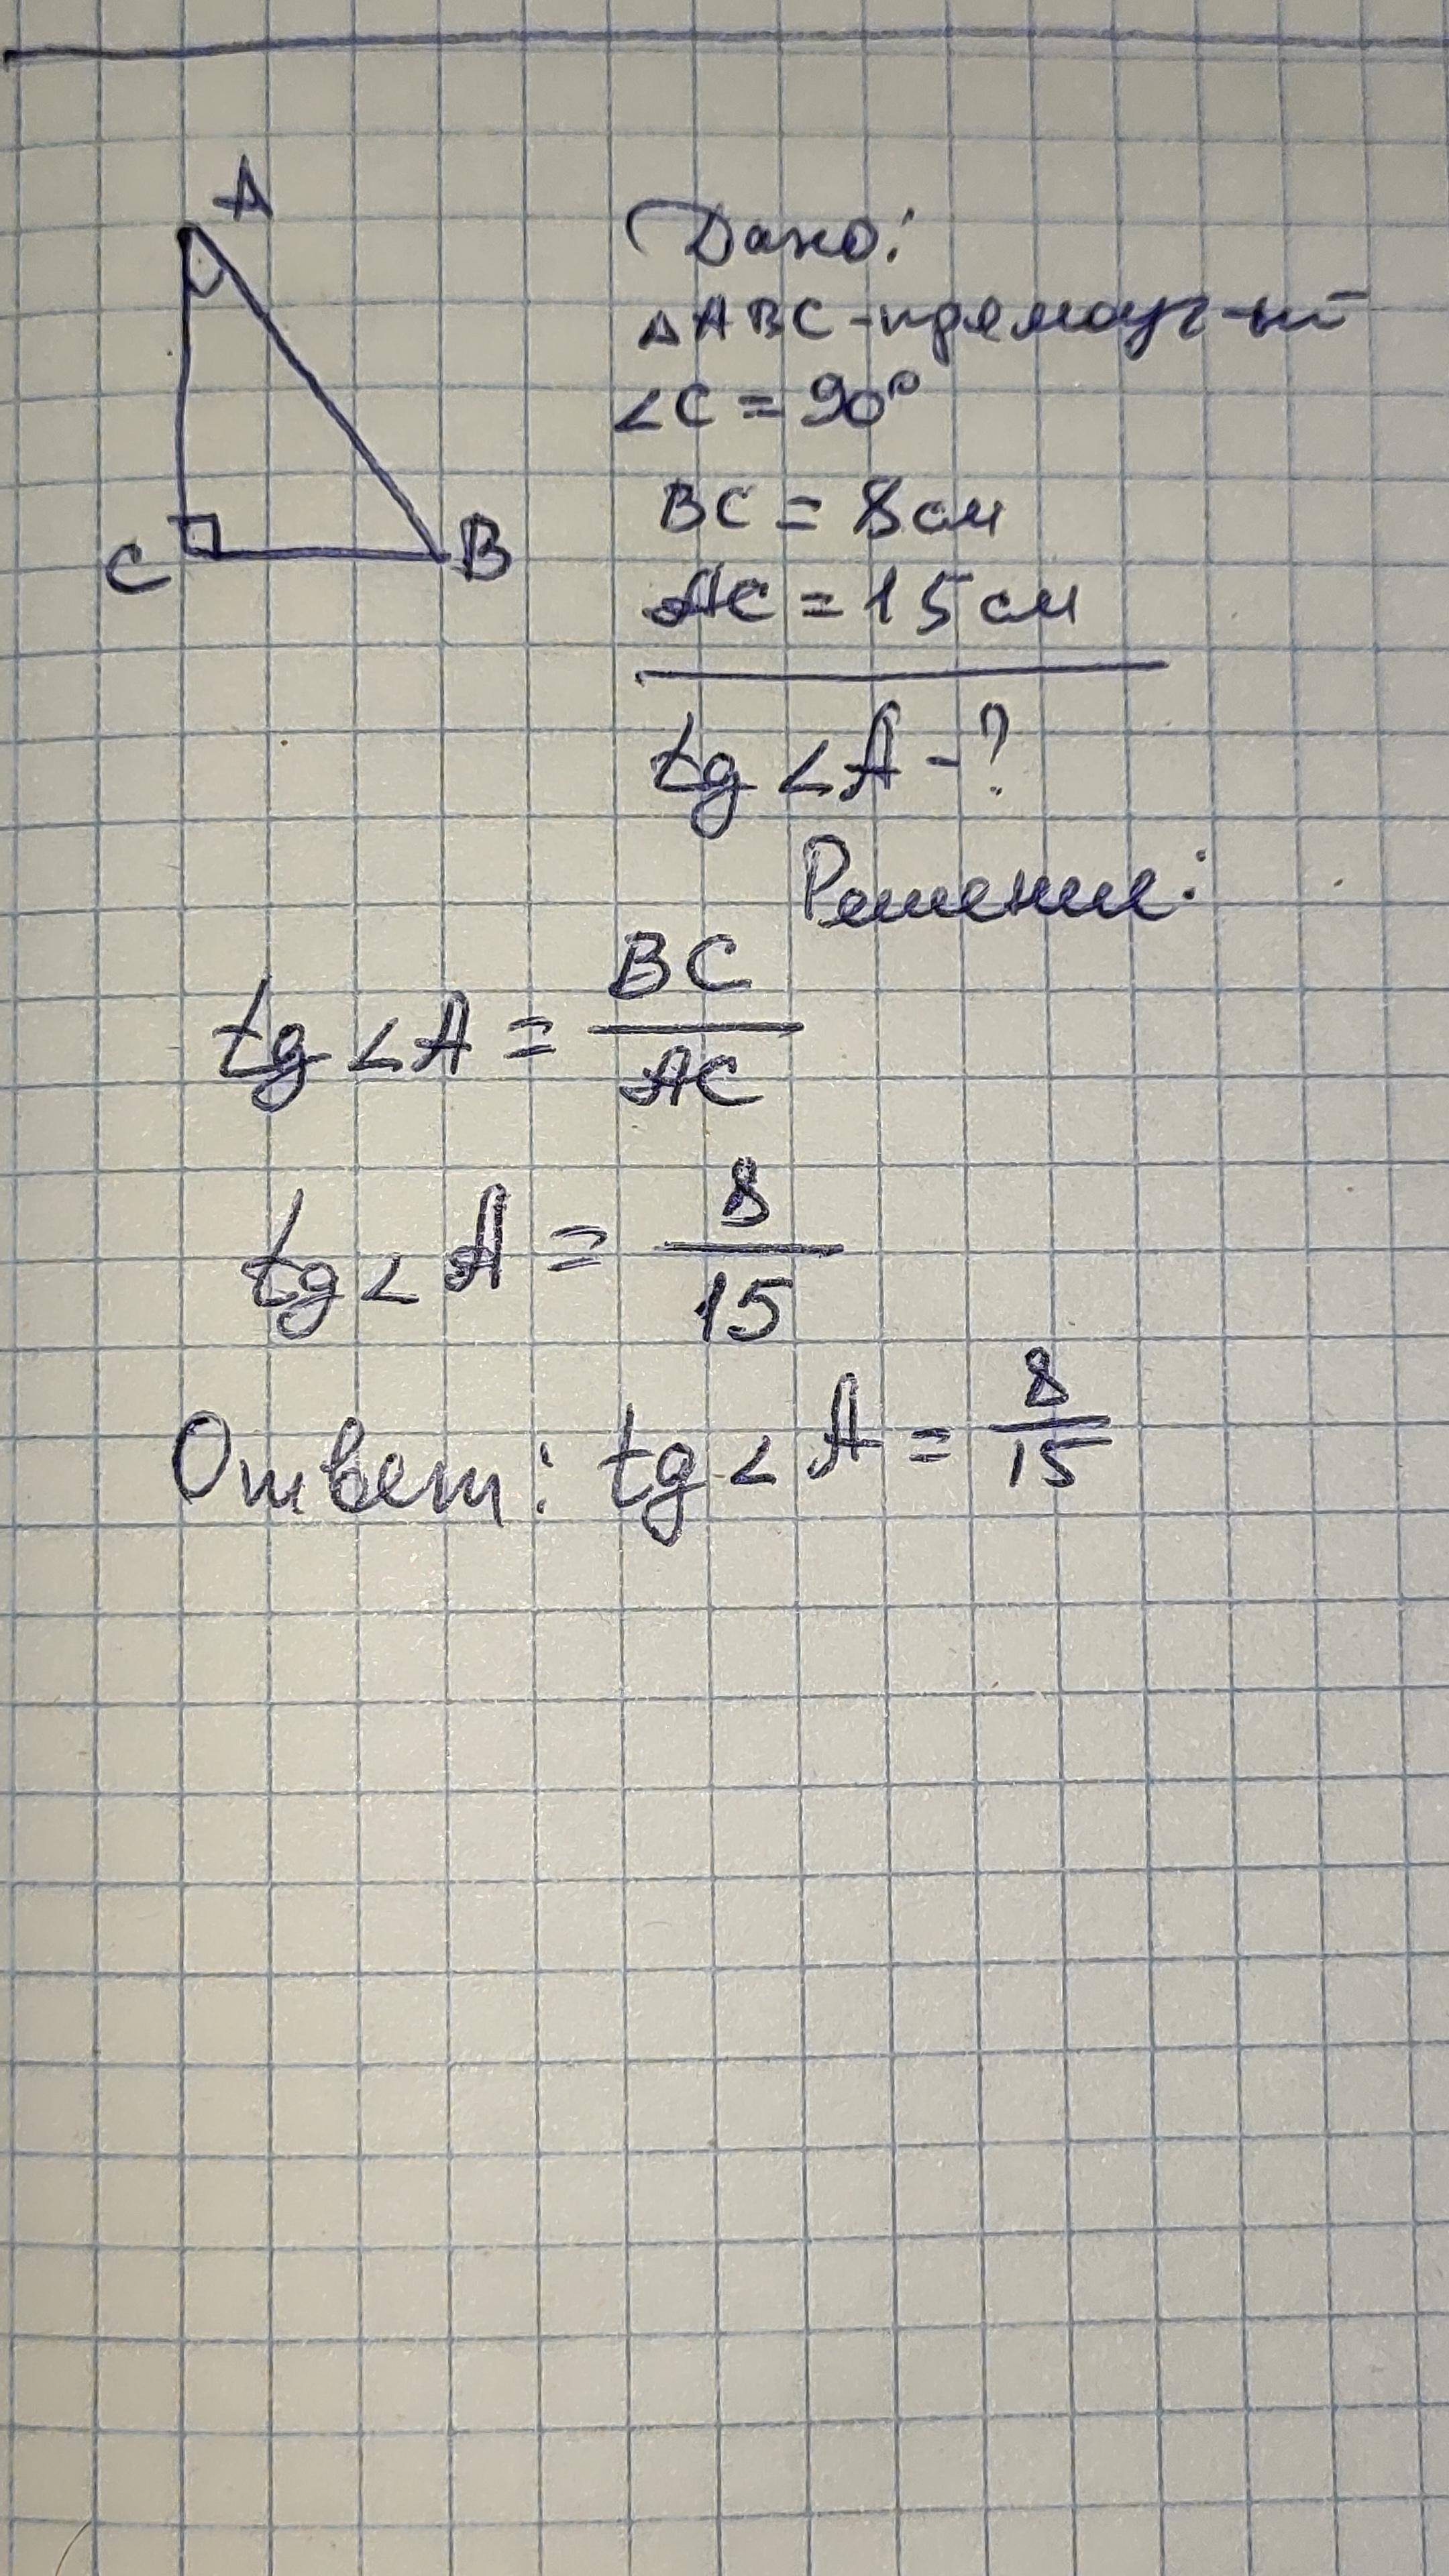 A
C
B
Дано:
△ABC-прямоуг-ый
∠C = 90°
BC = 8 см
AC = 15 см
tg ∠A - ?
Решение:
tg ∠A = BC/AC
tg ∠A = 8/15
Ответ: tg ∠A = 8/15